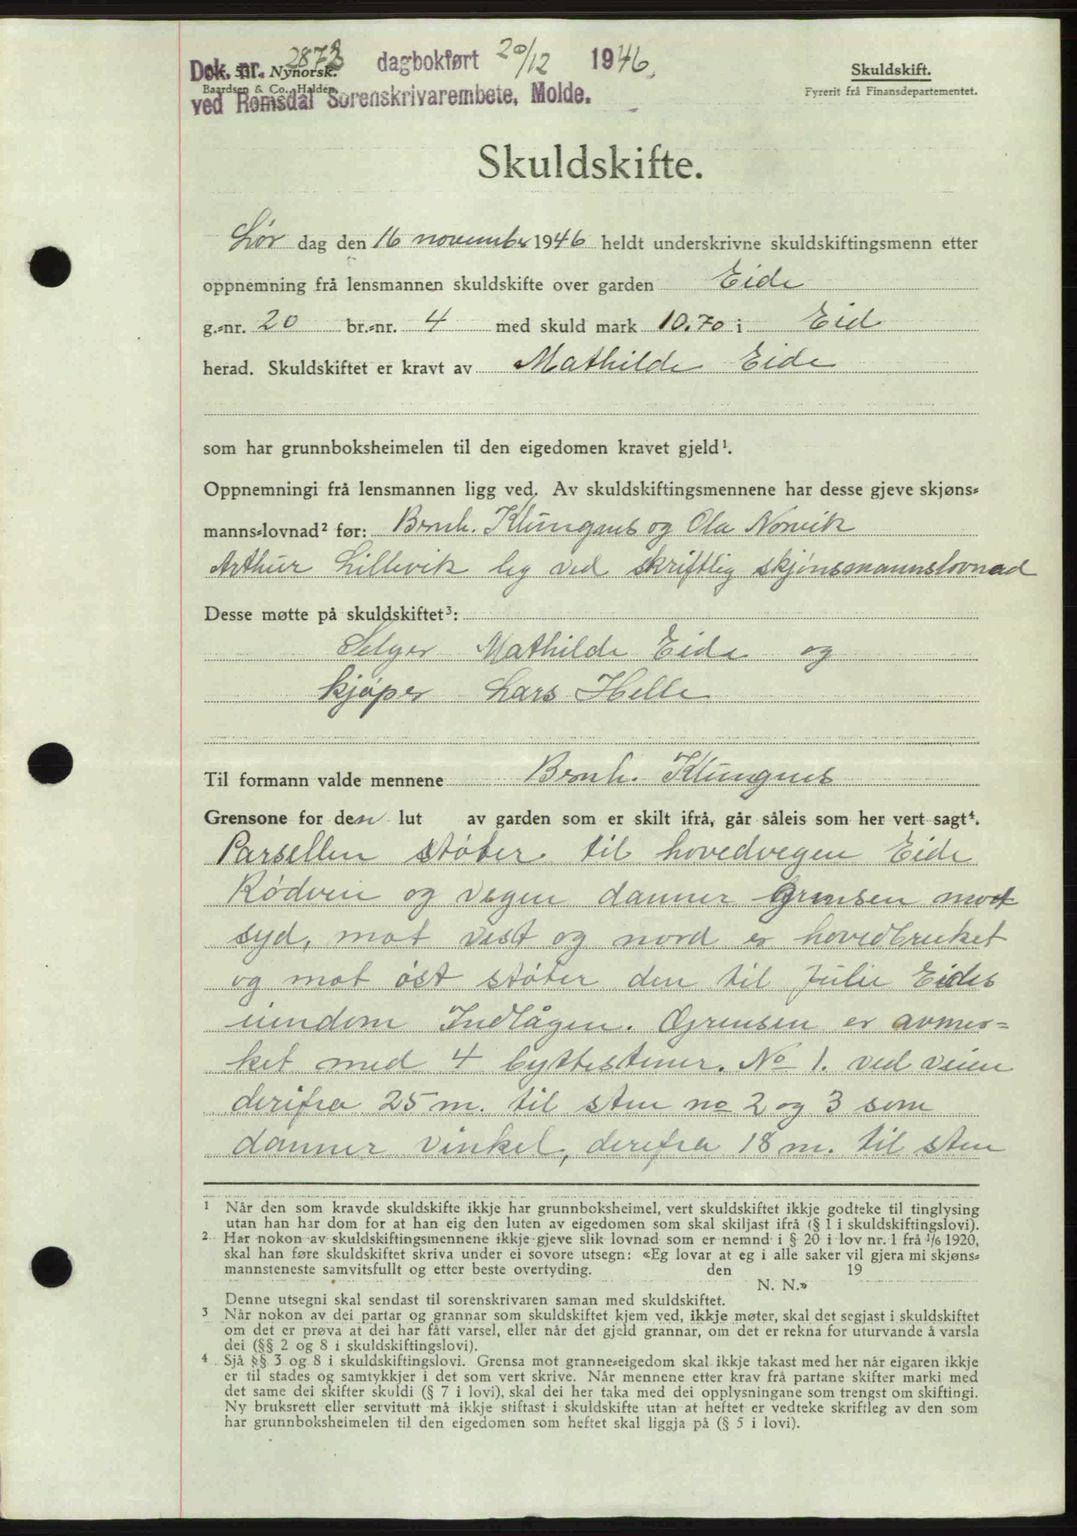 Dok. nr. 2873 dagbokført 20/12 1946.
Nynorsk.
Baardsen & Co., Halden.
ved Romsdal Sorenskrivarembete, Molde.
Skuldskift.
Fyrerit frå Finansdepartementet.
Skuldskifte.
Lør dag den 16 november 1946 heldt underskrivne skuldskiftingsmenn etter
oppnemning frå lensmannen skuldskifte over garden Eide
g.-nr. 20 br.-nr. 4 med skuld mark 10.70 i Eid
herad. Skuldskiftet er kravt av Mathilde Eide
som har grunnboksheimelen til den eigedomen kravet gjeld¹.
Oppnemningi frå lensmannen ligg ved. Av skuldskiftingsmennene har desse gjeve skjøns-
manns-lovnad² før: Bernh. Klungnes og Ola Norvik
Arthur Lillevik leg ved skriftlig skjønsmannslovnad
Desse møtte på skuldskiftet³:
Selger Mathilde Eide og
kjøper Lars Helle
Til formann valde mennene Bernh. Klungnes
Grensone for den lut av garden som er skilt ifrå, går såleis som her vert sagt⁴.
Parsellen støter til hovedvegen Eide
Rødven og vegen danner grensen mot
syd, mot vest og nord er hovedbruket
og mot øst støter den til Julie Eides
eiendom Indlågen. Grensen er avmer=
ket med 4 byttestener. No 1. ved veien
derifra 25 m. til sten no 2 og 3 som
danner vinkel, derefra 18 m. til sten
1 Når den som kravde skuldskifte ikkje har grunnboksheimel, vert skuldskiftet ikkje godteke til tinglysing
utan han har dom for at han eig den luten av eigedomen som skal skiljast ifrå (§ 1 i skuldskiftingslovi).
2 Har nokon av skuldskiftingsmennene ikkje gjeve slik lovnad som er nemnd i § 20 i lov nr. 1 frå 1/6 1920,
skal han føre skuldskiftet skriva under ei sovore utsegn: «Eg lovar at eg i alle saker vil gjera mi skjøns-
mannsteneste samvitsfullt og etter beste overtyding. den 19
N. N.»
Denne utsegni skal sendast til sorenskrivaren saman med skuldskiftet.
3 Når nokon av dei partar og grannar som skuldskiftet kjem ved, ikkje møter, skal det segjast i skuldskiftet
om det er prøva at dei har fått varsel, eller når det gjeld grannar, om det er rekna for uturvande å varsla
dei (§§ 2 og 8 i skuldskiftingslovi).
4 Sjå §§ 3 og 8 i skuldskiftingslovi. Grensa mot granne-eigedom skal ikkje takast med her når eigaren ikkje
er til stades og samtykkjer i det som vert skrive. Når mennene etter krav frå partane skifter marki med
det same dei skifter skuldi (§ 7 i lovi), skal dei her taka med dei opplysningane som trengst om skiftingi.
Ny bruksrett eller servitutt må ikkje stiftast i skuldskifte utan at heftet er vedteke skriftleg av den som
har grunnboksheimelen til den eigedomen som heftet skal liggja på (§ 5 i lovi).